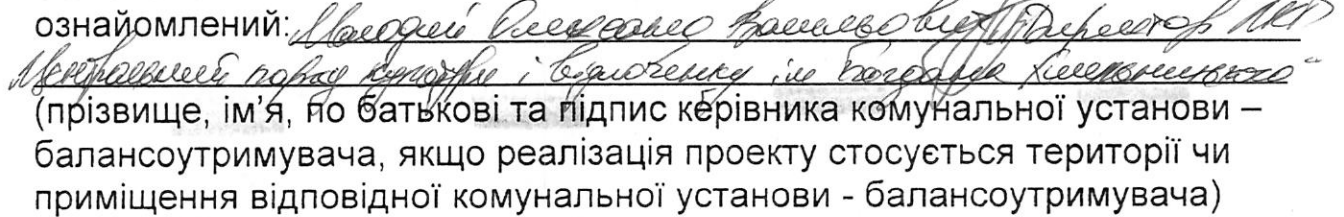 ознайомлений: Молодий Олександр Васильович Директор ЛКП
Центральний парк культури і відпочинку ім Богдана Хмельницького"
(прізвище, ім'я, по батькові та підпис керівника комунальної установи –
балансоутримувача, якщо реалізація проекту стосується території чи
приміщення відповідної комунальної установи - балансоутримувача)